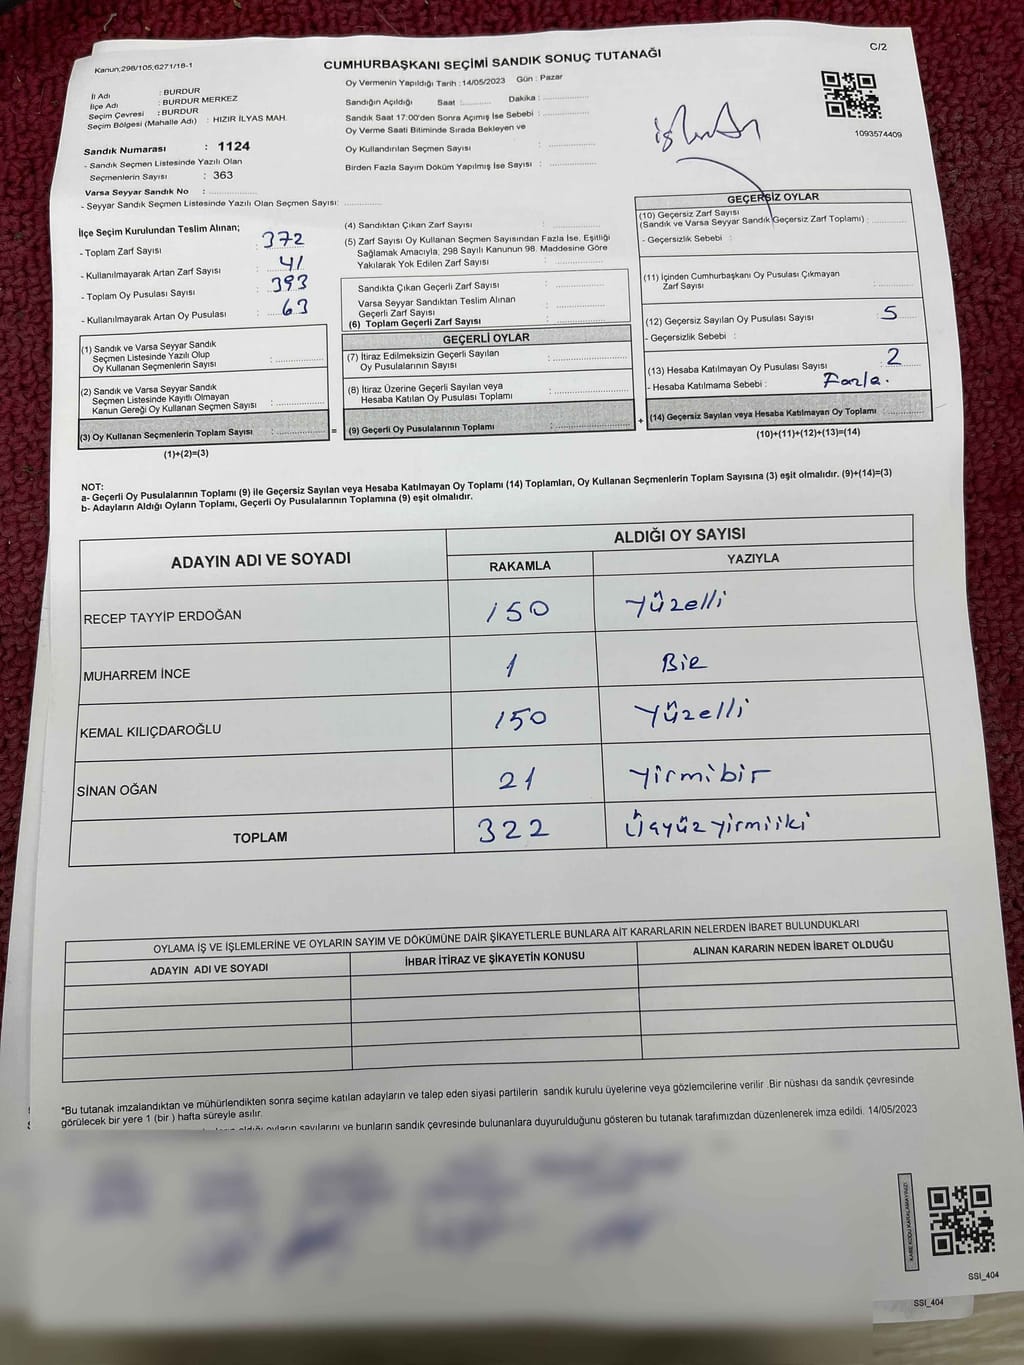 Kanun;298/105,6271/18-1
CUMHURBAŞKANI SEÇİMİ SANDIK SONUÇ TUTANAĞI
C/2
İl Adı : BURDUR
İlçe Adı : BURDUR MERKEZ
Seçim Çevresi : BURDUR
Seçim Bölgesi (Mahalle Adı) : HIZIR İLYAS MAH.
Sandık Numarası : 1124
- Sandık Seçmen Listesinde Yazılı Olan
Seçmenlerin Sayısı : 363
Varsa Seyyar Sandık No : ..............
- Seyyar Sandık Seçmen Listesinde Yazılı Olan Seçmen Sayısı: ..............
Oy Vermenin Yapıldığı Tarih : 14/05/2023 Gün : Pazar
Sandığın Açıldığı Saat :.......... Dakika : ..............
Sandık Saat 17:00'den Sonra Açımış İse Sebebi : ..............
Oy Verme Saati Bitiminde Sırada Bekleyen ve
Oy Kullandırılan Seçmen Sayısı : ..............
Birden Fazla Sayım Döküm Yapılmış İse Sayısı : ..............
1093574409
İlçe Seçim Kurulundan Teslim Alınan;
- Toplam Zarf Sayısı : 372
- Kullanılmayarak Artan Zarf Sayısı : 41
- Toplam Oy Pusulası Sayısı : 393
- Kullanılmayarak Artan Oy Pusulası : 63
(1) Sandık ve Varsa Seyyar Sandık
Seçmen Listesinde Yazılı Olup
Oy Kullanan Seçmenlerin Sayısı : ..............
(2) Sandık ve Varsa Seyyar Sandık
Seçmen Listesinde Kayıtlı Olmayan
Kanun Gereği Oy Kullanan Seçmen Sayısı : ..............
(3) Oy Kullanan Seçmenlerin Toplam Sayısı : ..............
(1)+(2)=(3)
=
(4) Sandıktan Çıkan Zarf Sayısı : ..............
(5) Zarf Sayısı Oy Kullanan Seçmen Sayısından Fazla İse, Eşitliği
Sağlamak Amacıyla, 298 Sayılı Kanunun 98. Maddesine Göre
Yakılarak Yok Edilen Zarf Sayısı : ..............
Sandıkta Çıkan Geçerli Zarf Sayısı : ..............
Varsa Seyyar Sandıktan Teslim Alınan
Geçerli Zarf Sayısı : ..............
(6) Toplam Geçerli Zarf Sayısı : ..............
GEÇERLİ OYLAR
(7) İtiraz Edilmeksizin Geçerli Sayılan
Oy Pusulalarının Sayısı : ..............
(8) İtiraz Üzerine Geçerli Sayılan veya
Hesaba Katılan Oy Pusulası Toplamı : ..............
(9) Geçerli Oy Pusulalarının Toplamı : ..............
+
GEÇERSİZ OYLAR
(10) Geçersiz Zarf Sayısı
(Sandık ve Varsa Seyyar Sandık Geçersiz Zarf Toplamı) : ..............
- Geçersizlik Sebebi :
(11) İçinden Cumhurbaşkanı Oy Pusulası Çıkmayan
Zarf Sayısı : ..............
(12) Geçersiz Sayılan Oy Pusulası Sayısı : 5
- Geçersizlik Sebebi :
(13) Hesaba Katılmayan Oy Pusulası Sayısı : 2
- Hesaba Katılmama Sebebi : Fazla.
(14) Geçersiz Sayılan veya Hesaba Katılmayan Oy Toplamı : ..............
(10)+(11)+(12)+(13)=(14)
NOT:
a- Geçerli Oy Pusulalarının Toplamı (9) ile Geçersiz Sayılan veya Hesaba Katılmayan Oy Toplamı (14) Toplamları, Oy Kullanan Seçmenlerin Toplam Sayısına (3) eşit olmalıdır. (9)+(14)=(3)
b- Adayların Aldığı Oyların Toplamı, Geçerli Oy Pusulalarının Toplamına (9) eşit olmalıdır.
ADAYIN ADI VE SOYADI
ALDIĞI OY SAYISI
RAKAMLA YAZIYLA
RECEP TAYYİP ERDOĞAN 150 Yüzelli
MUHARREM İNCE 1 Bir
KEMAL KILIÇDAROĞLU 150 Yüzelli
SİNAN OĞAN 21 Yirmibir
TOPLAM 322 Üçyüzyirmiiki
OYLAMA İŞ VE İŞLEMLERİNE VE OYLARIN SAYIM VE DÖKÜMÜNE DAİR ŞİKAYETLERLE BUNLARA AİT KARARLARIN NELERDEN İBARET BULUNDUKLARI
ADAYIN ADI VE SOYADI İHBAR İTİRAZ VE ŞİKAYETİN KONUSU ALINAN KARARIN NEDEN İBARET OLDUĞU
*Bu tutanak imzalandıktan ve mühürlendikten sonra seçime katılan adayların ve talep eden siyasi partilerin sandık kurulu üyelerine veya gözlemcilerine verilir .Bir nüshası da sandık çevresinde
görülecek bir yere 1 (bir ) hafta süreyle asılır.
aldığı oyların sayılarını ve bunların sandık çevresinde bulunanlara duyurulduğunu gösteren bu tutanak tarafımızdan düzenlenerek imza edildi. 14/05/2023
KARE KODU KARALAMAYINIZ!
SSI_404
SSI_404